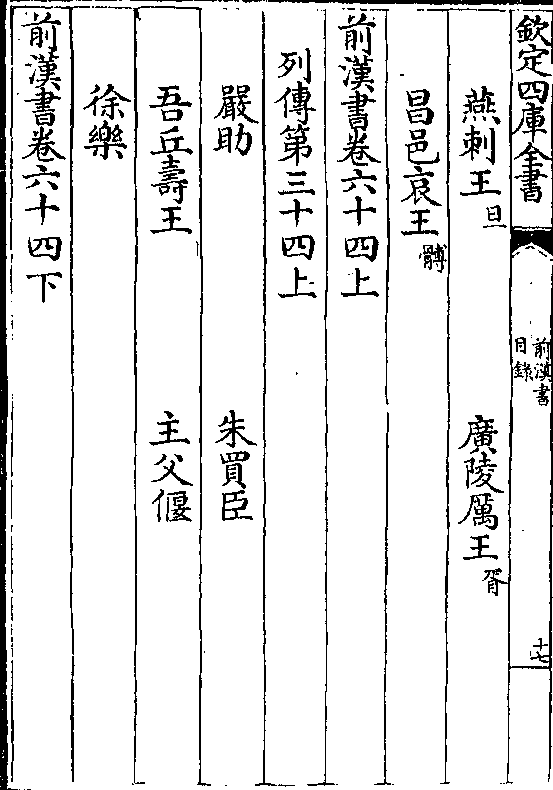 欽定四庫全書
前漢書
目錄
十七
燕刺王旦 廣陵厲王胥
昌邑哀王髆
前漢書卷六十四上
列傳第三十四上
嚴助 朱買臣
吾丘壽王 主父偃
徐樂
前漢書卷六十四下